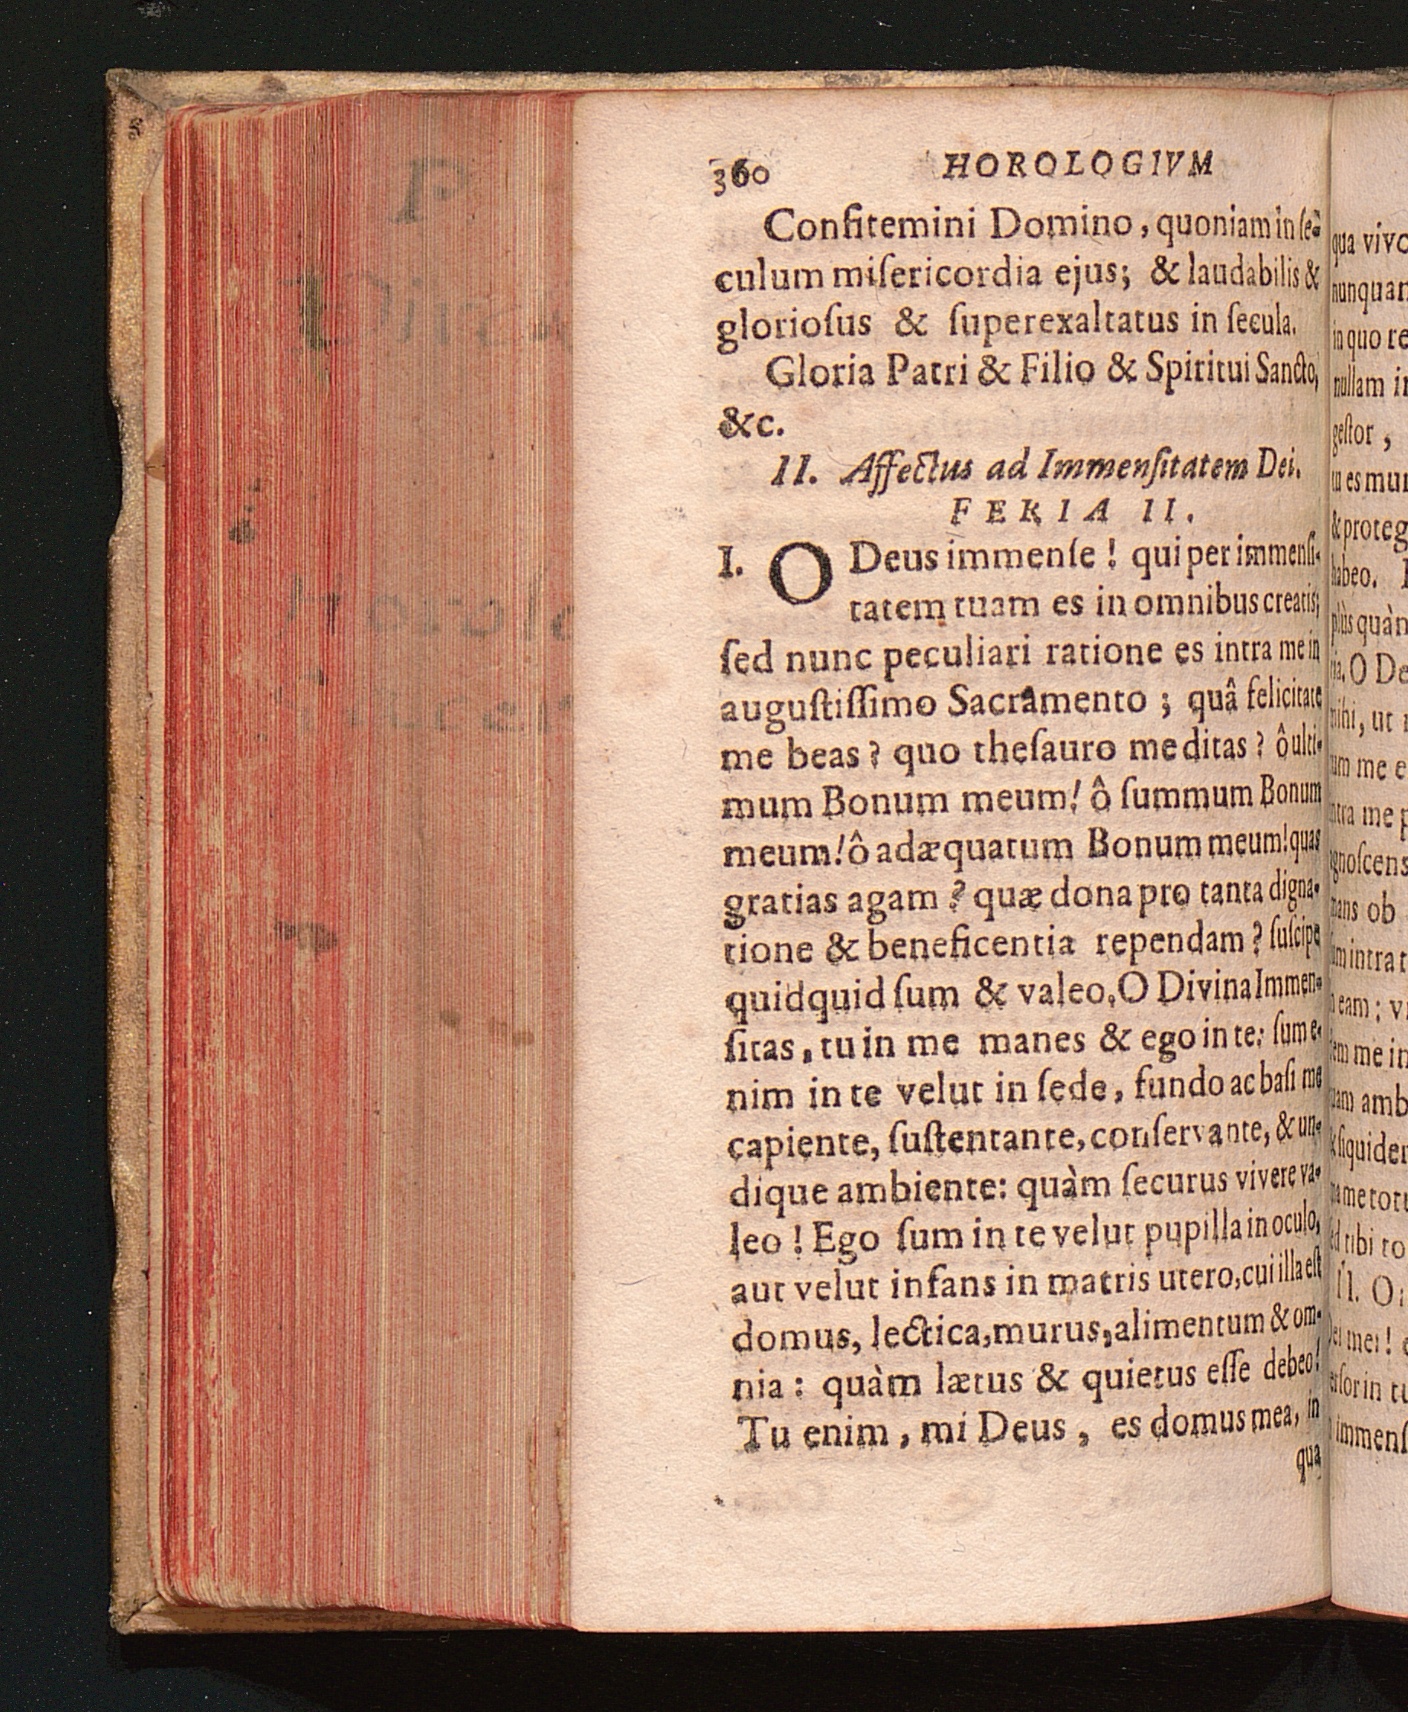 360 HOROLOGIVM
Confitemini Domino, quoniam in ſe-
culum miſericordia ejus; & laudabilis &
glorioſus & ſuperexaltatus in ſecula.
Gloria Patri & Filio & Spiritui Sancto,
&c.
II. Affectus ad Immenſitatem Dei.
FERIA II.
I. O Deus immenſe! qui per immenſi-
tatem tuam es in omnibus creatis;
ſed nunc peculiari ratione es intra me in
auguſtiſſimo Sacramento; quâ felicitate
me beas? quo theſauro me ditas? ô ulti-
mum Bonum meum! ô ſummum Bonum
meum! ô adæquatum Bonum meum! quas
gratias agam? quæ dona pro tanta digna-
tione & beneficentia rependam? ſuſcipe
quidquid ſum & valeo. O Divina Immen-
ſitas, tu in me manes & ego in te: ſum e-
nim in te velut in ſede, fundo ac baſi me
capiente, ſuſtentante, conſervante, & un-
dique ambiente: quàm ſecurus vivere va-
leo! Ego ſum in te velut pupilla in oculo,
aut velut infans in matris utero, cui illa eſt
domus, lectica, murus, alimentum & om-
nia: quàm lætus & quietus eſſe debeo!
Tu enim, mi Deus, es domus mea, in
qua
qua vivo
in quo
geſtor,
tu es
habeo.
O
, ut
me
me
ob
intra
eam;
me in
tibi
II.
mei!
in